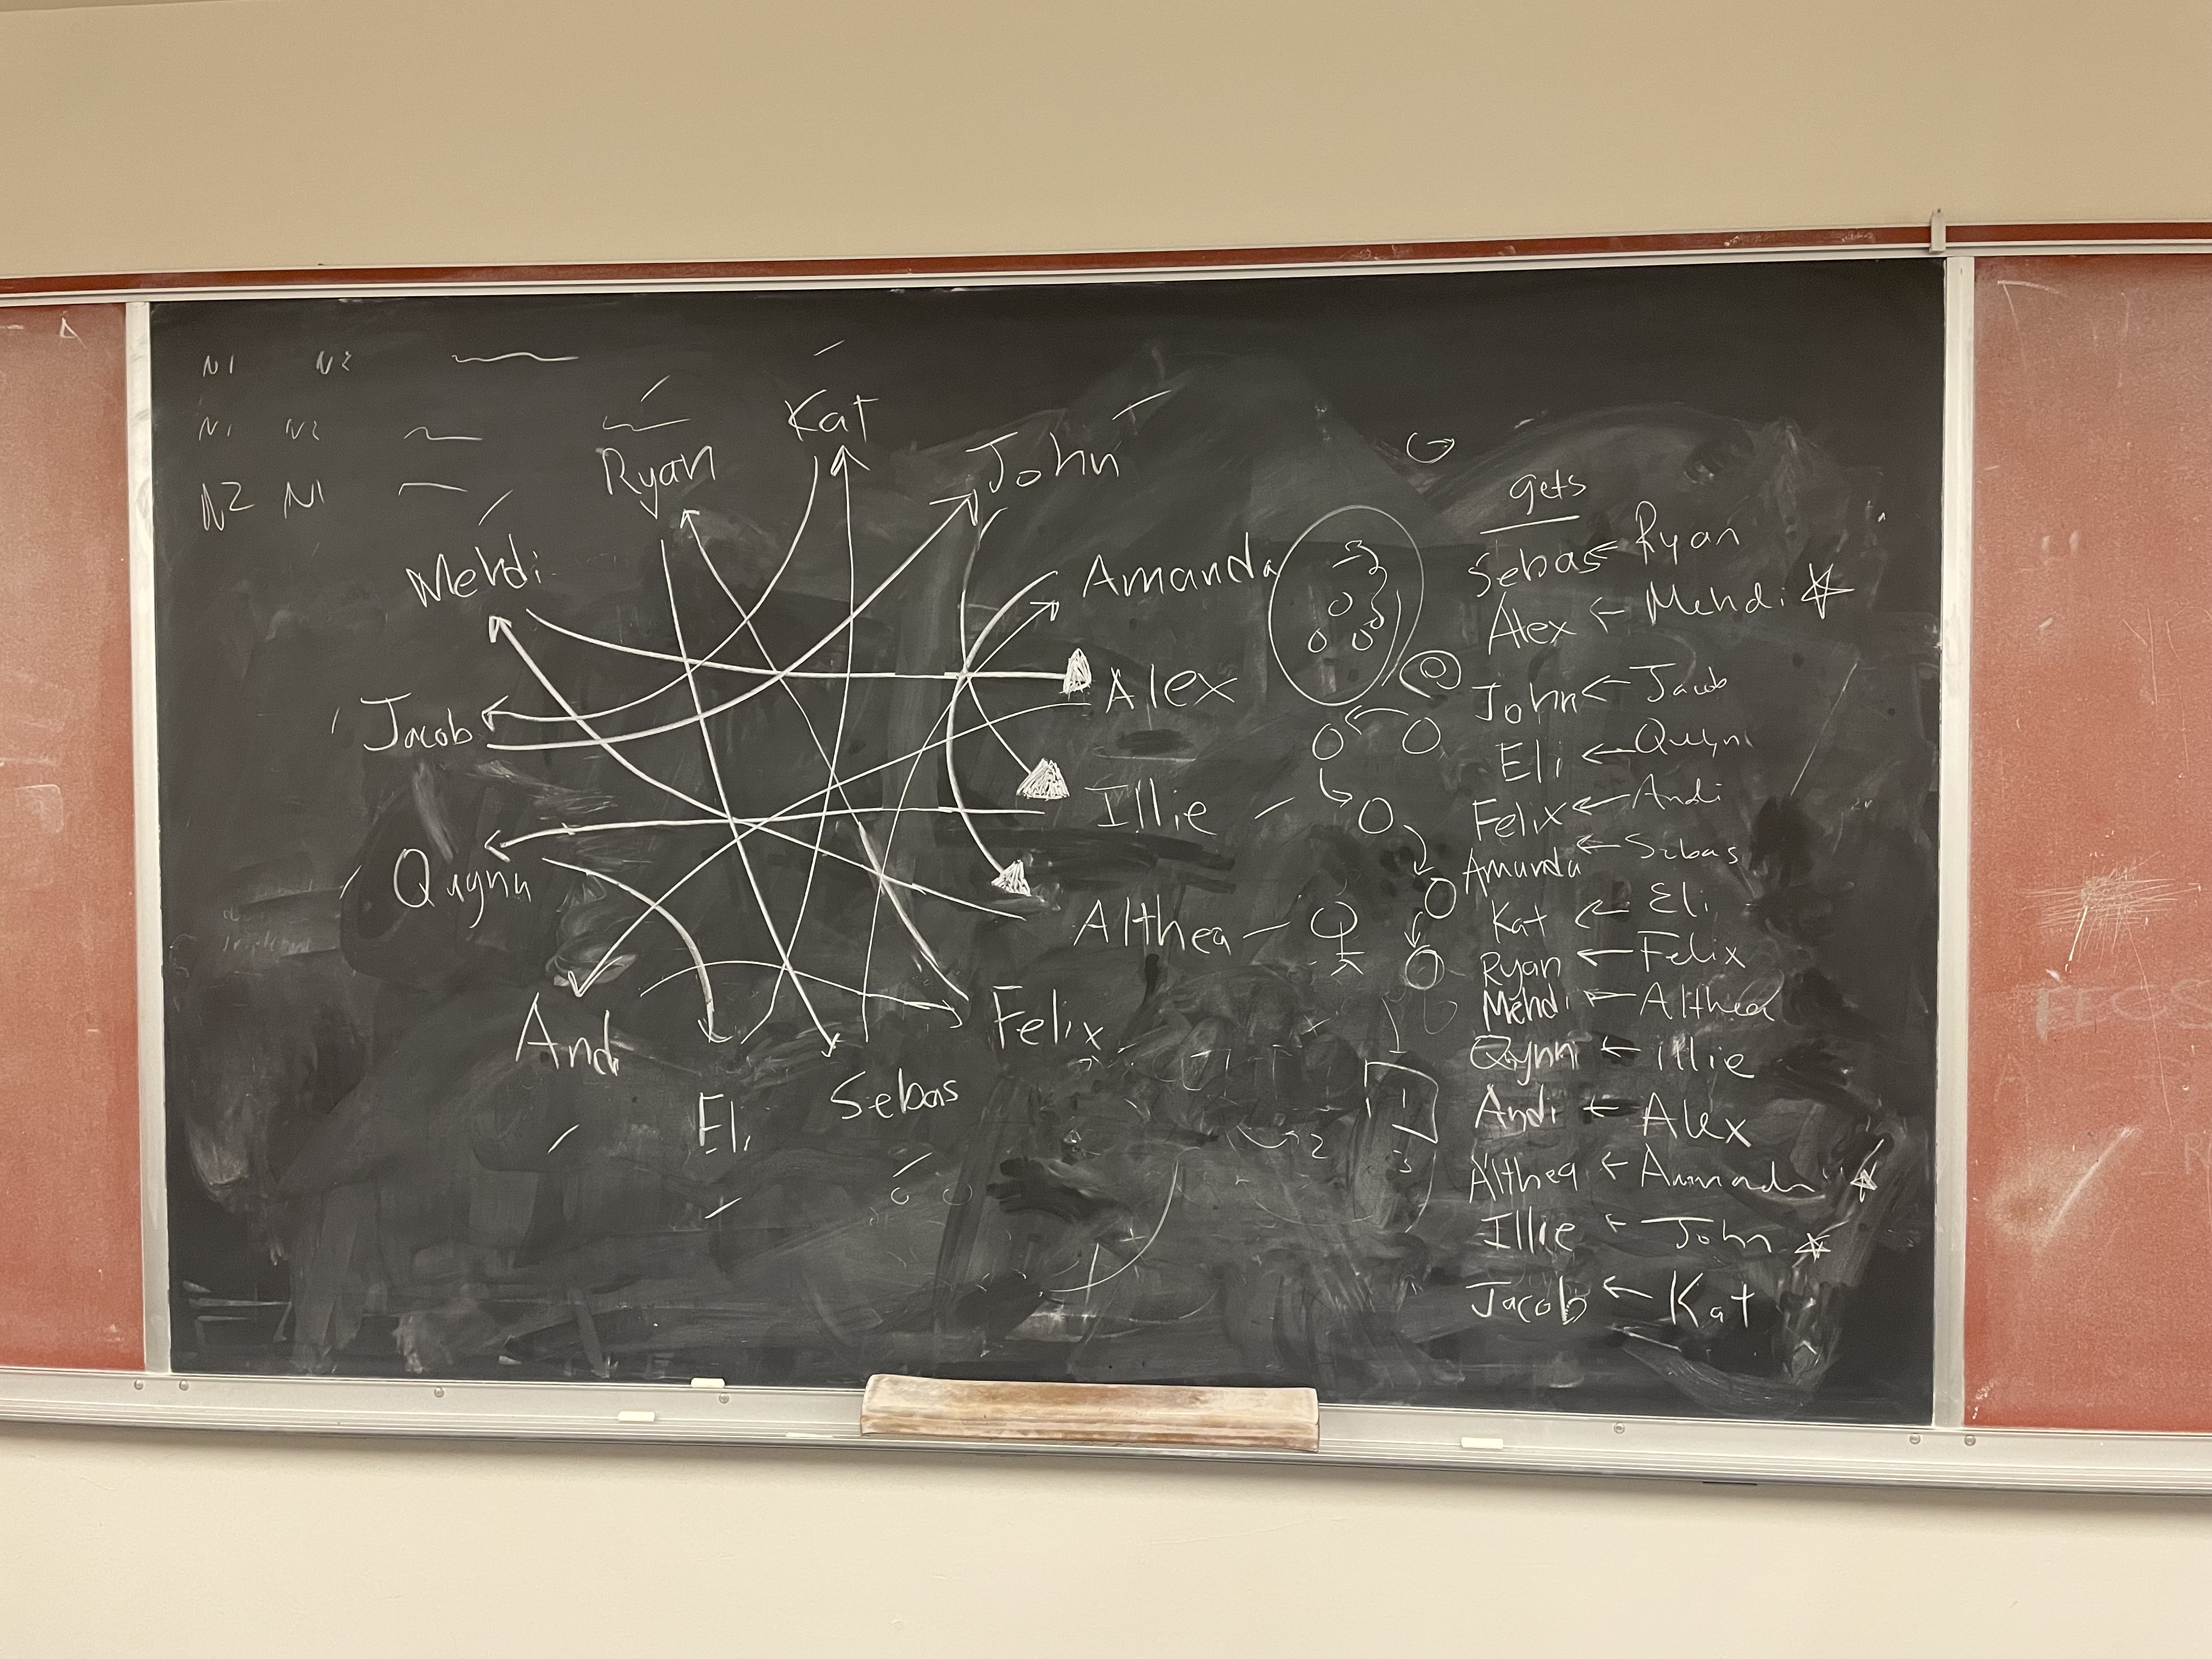 N1 N2
N1 N2
N2 N1
Kat
Ryan
John
Mehdi
Amanda
Jacob
Alex
Illie
Quynn
Althea
Andi
Felix
Eli
Sebas
gets
Sebas ← Ryan
Alex ← Mehdi ☆
John ← Jacob
Eli ← Quynn
Felix ← Andi
Amanda ← Sebas
Kat ← Eli
Ryan ← Felix
Mehdi ← Althea
Qynn ← illie
Andi ← Alex
Althea ← Amanda ☆
Illie ← John ☆
Jacob ← Kat